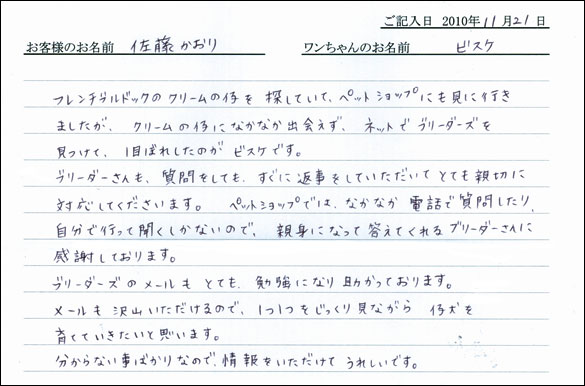 ご記入日 2010年11月21日
お客様のお名前 佐藤かおり ワンちゃんのお名前 ビスケ
フレンチブルドックのクリームの仔を探していて、ペットショップにも見に行き
ましたが、クリームの仔になかなか出会えず、ネットでブリーダーズを
見つけて、1目ぼれしたのがビスケです。
ブリーダーさんも、質問をしても、すぐに返事をしていただいてとても親切に
対応してくださいます。 ペットショップでは、なかなか電話で質問したり、
自分で行って聞くしかないので、親身になって答えてくれるブリーダーさんに
感謝しております。
ブリーダーズのメールもとても、勉強になり助かっております。
メールも沢山いただけるので、1つ1つをじっくり見ながら仔犬を
育てていきたいと思います。
分からない事ばかりなので、情報をいただけてうれしいです。